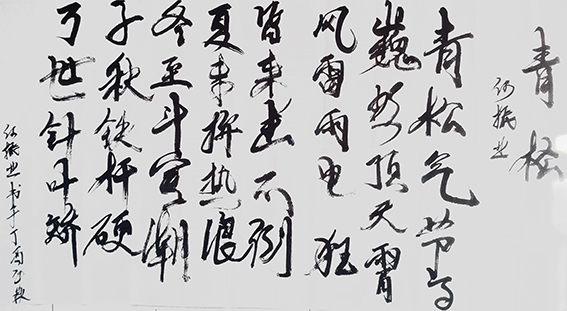 青松
振业
青松气节高
巍然顶天霄
风雷雨电狂
皆来击不倒
夏来热浪
冬至斗寒潮
千秋铁杆硬
万世针叶娇
振业书于丁酉